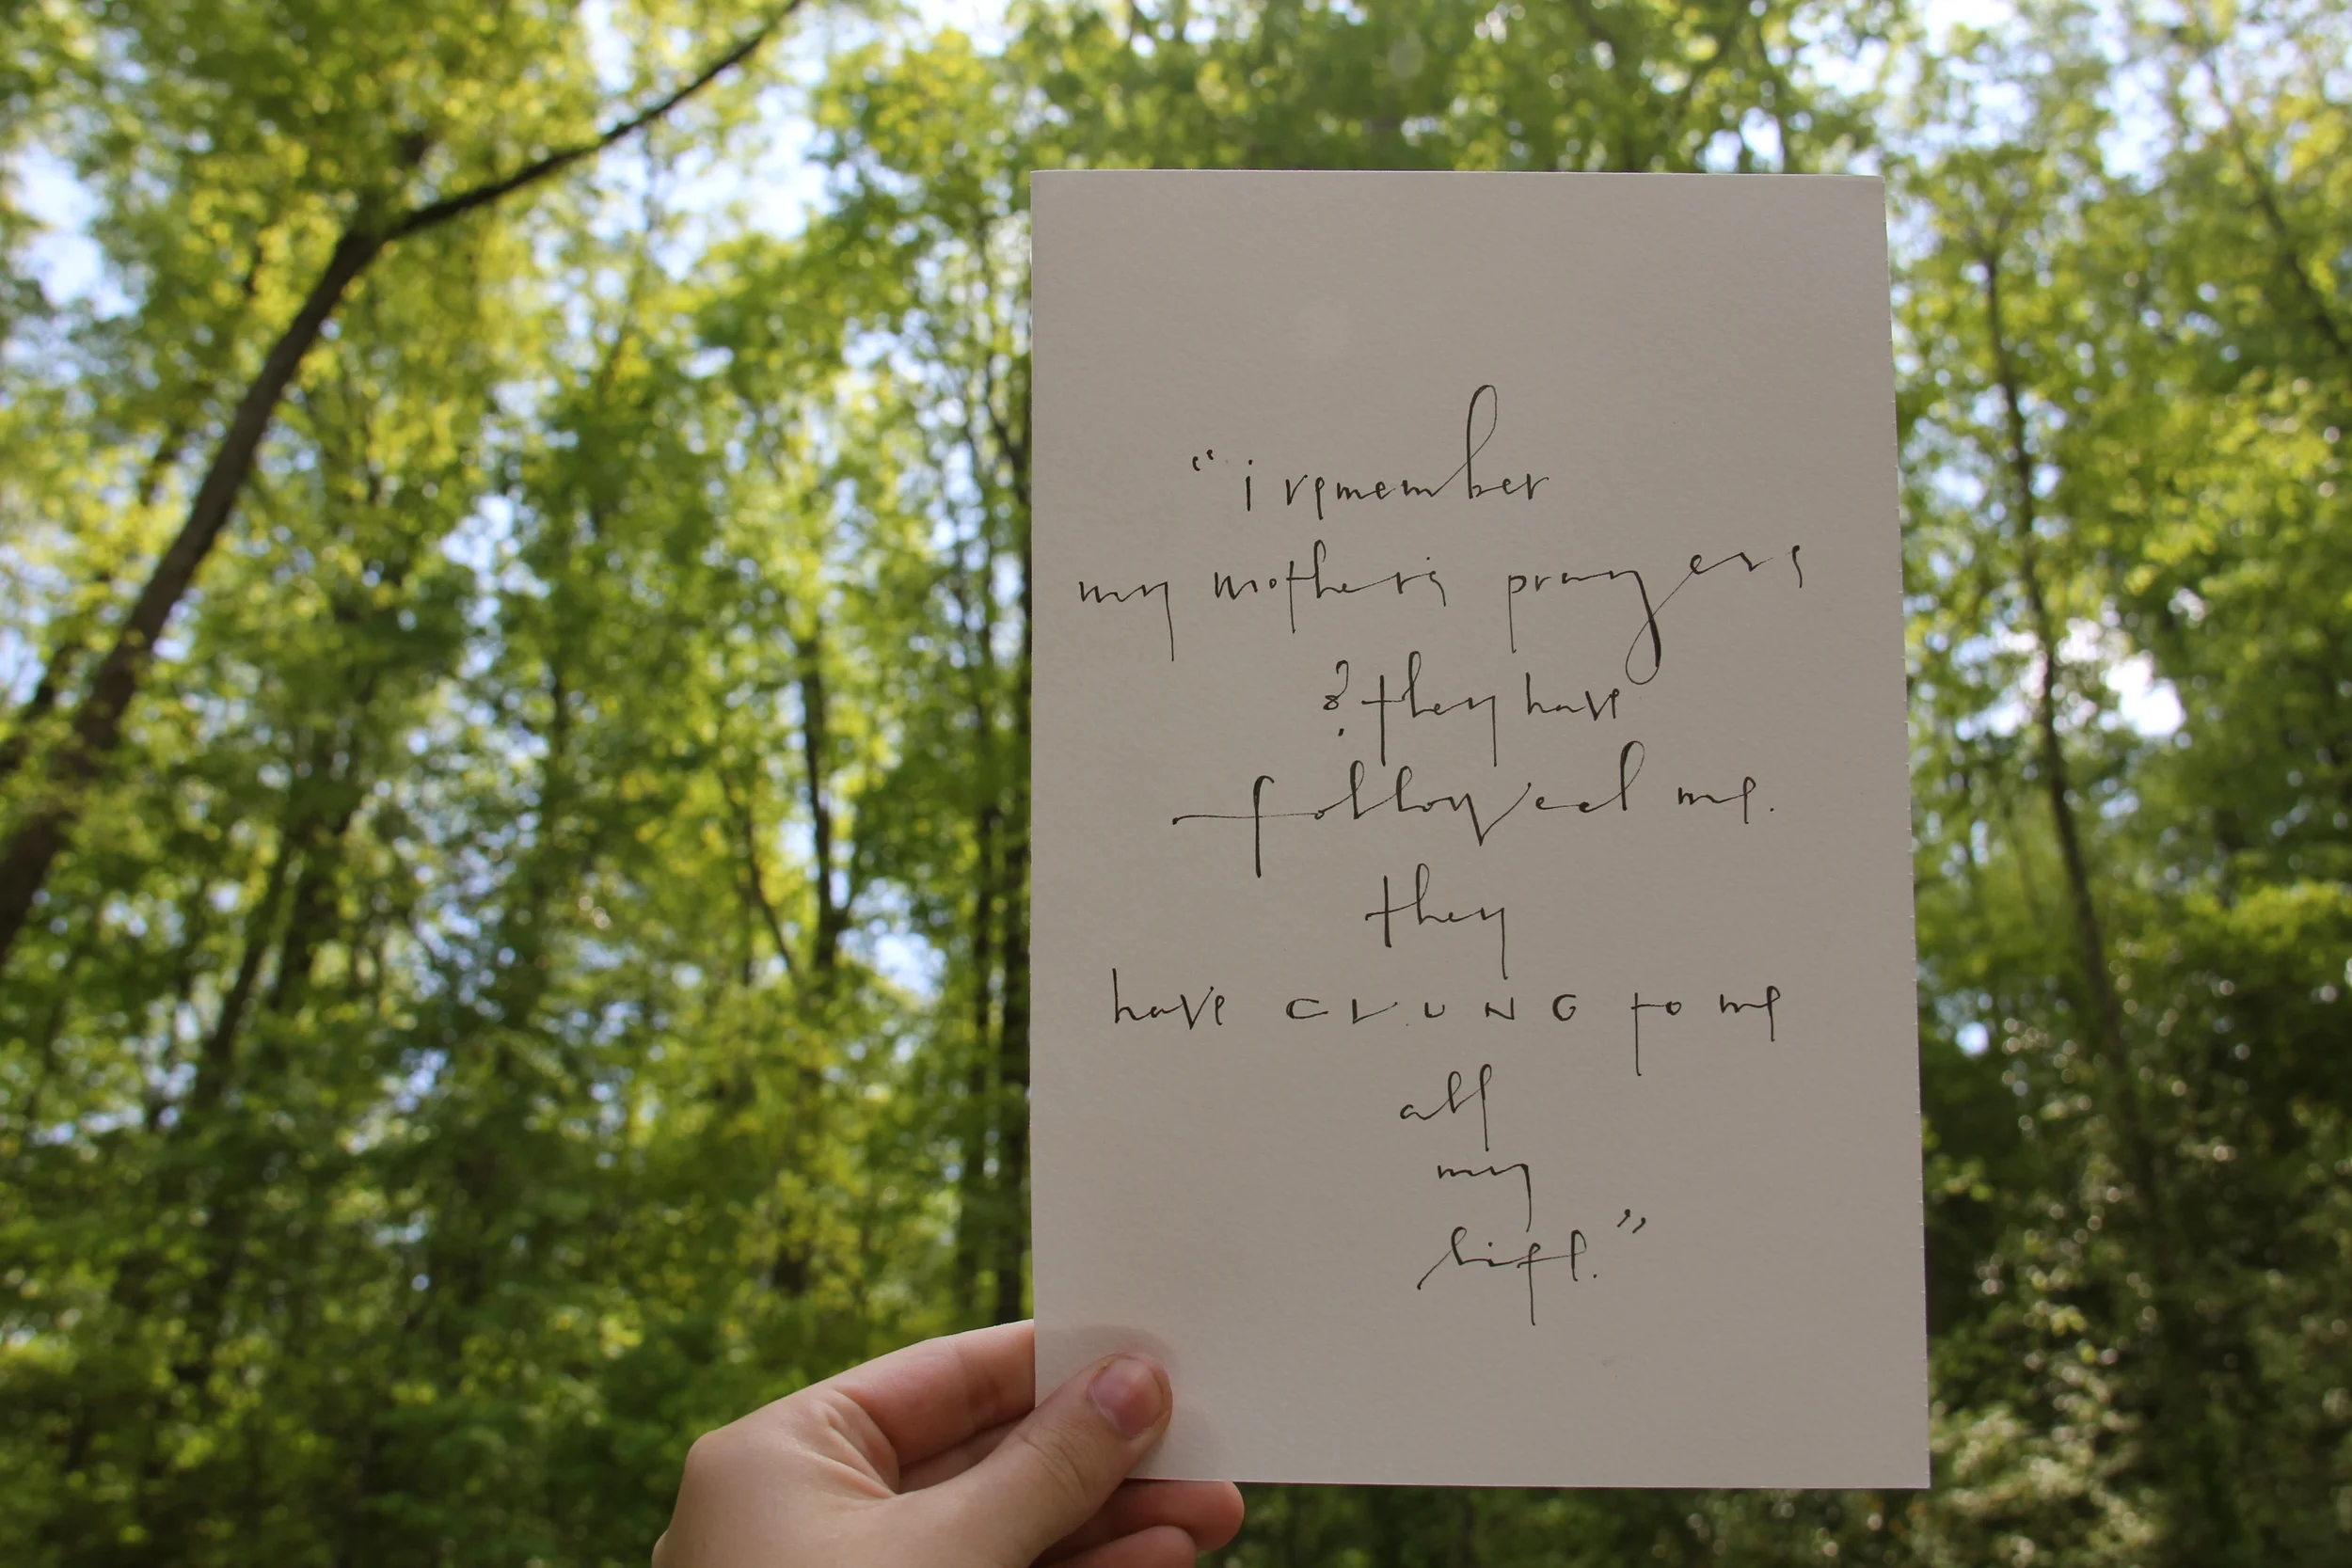 “i remember
my mother's prayers
& they have
followed me.
they
have CLUNG to me
all
my
life.”